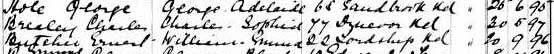 Hole George George Adelaide 66 Sandbrook Rd 26 6 95
Brealey Charles Charles Sophia 77 Dynevor Rd 30 5 97
Butcher Ernest William Emma 22 Lordship Rd 10 9 96